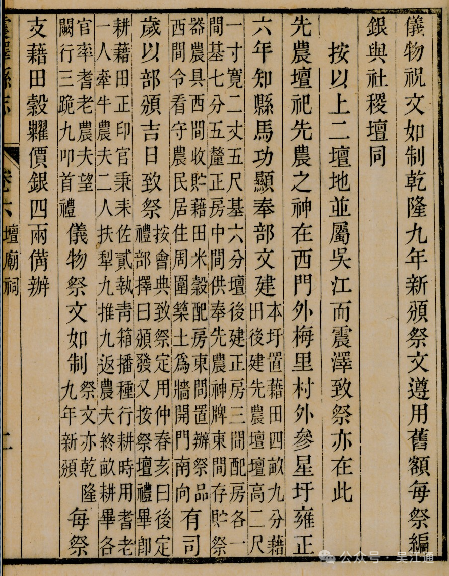 儀物祝文如制乾隆九年新頒祭文遵用舊額每祭編
銀與社稷壇同
按以上二壇地並屬吳江而震澤致祭亦在此
先農壇祀先農之神在西門外梅里村外參星圩雍正
六年知縣馬功顯奉部文建
本圩置藉田四畝九分藉
田後建先農壇壇高二尺
一寸寬二丈五尺基六分壇後建正房三間配房各一
間基七分五釐正房中間供奉先農神牌東間存貯祭
器農具西間收貯藉田米穀配房東間置辦祭品
西間令看守農民居住周圍築土為牆開門南向
有司
歲以部頒吉日致祭
按會典致祭定用仲春亥日後定
禮部擇日頒發又按祭壇禮畢即
耕藉田正印官秉耒佐貳執青箱播種行耕時用耆老
一人牽牛農夫二人扶犁九推九返農夫終畝耕畢各
官率耆老農夫望
闕行三跪九叩首禮
儀物祭文如制
祭文亦乾隆
九年新頒
每祭
支藉田穀糶價銀四兩備辦
震澤縣志
卷六
壇廟祠
二
公众号·吴江通